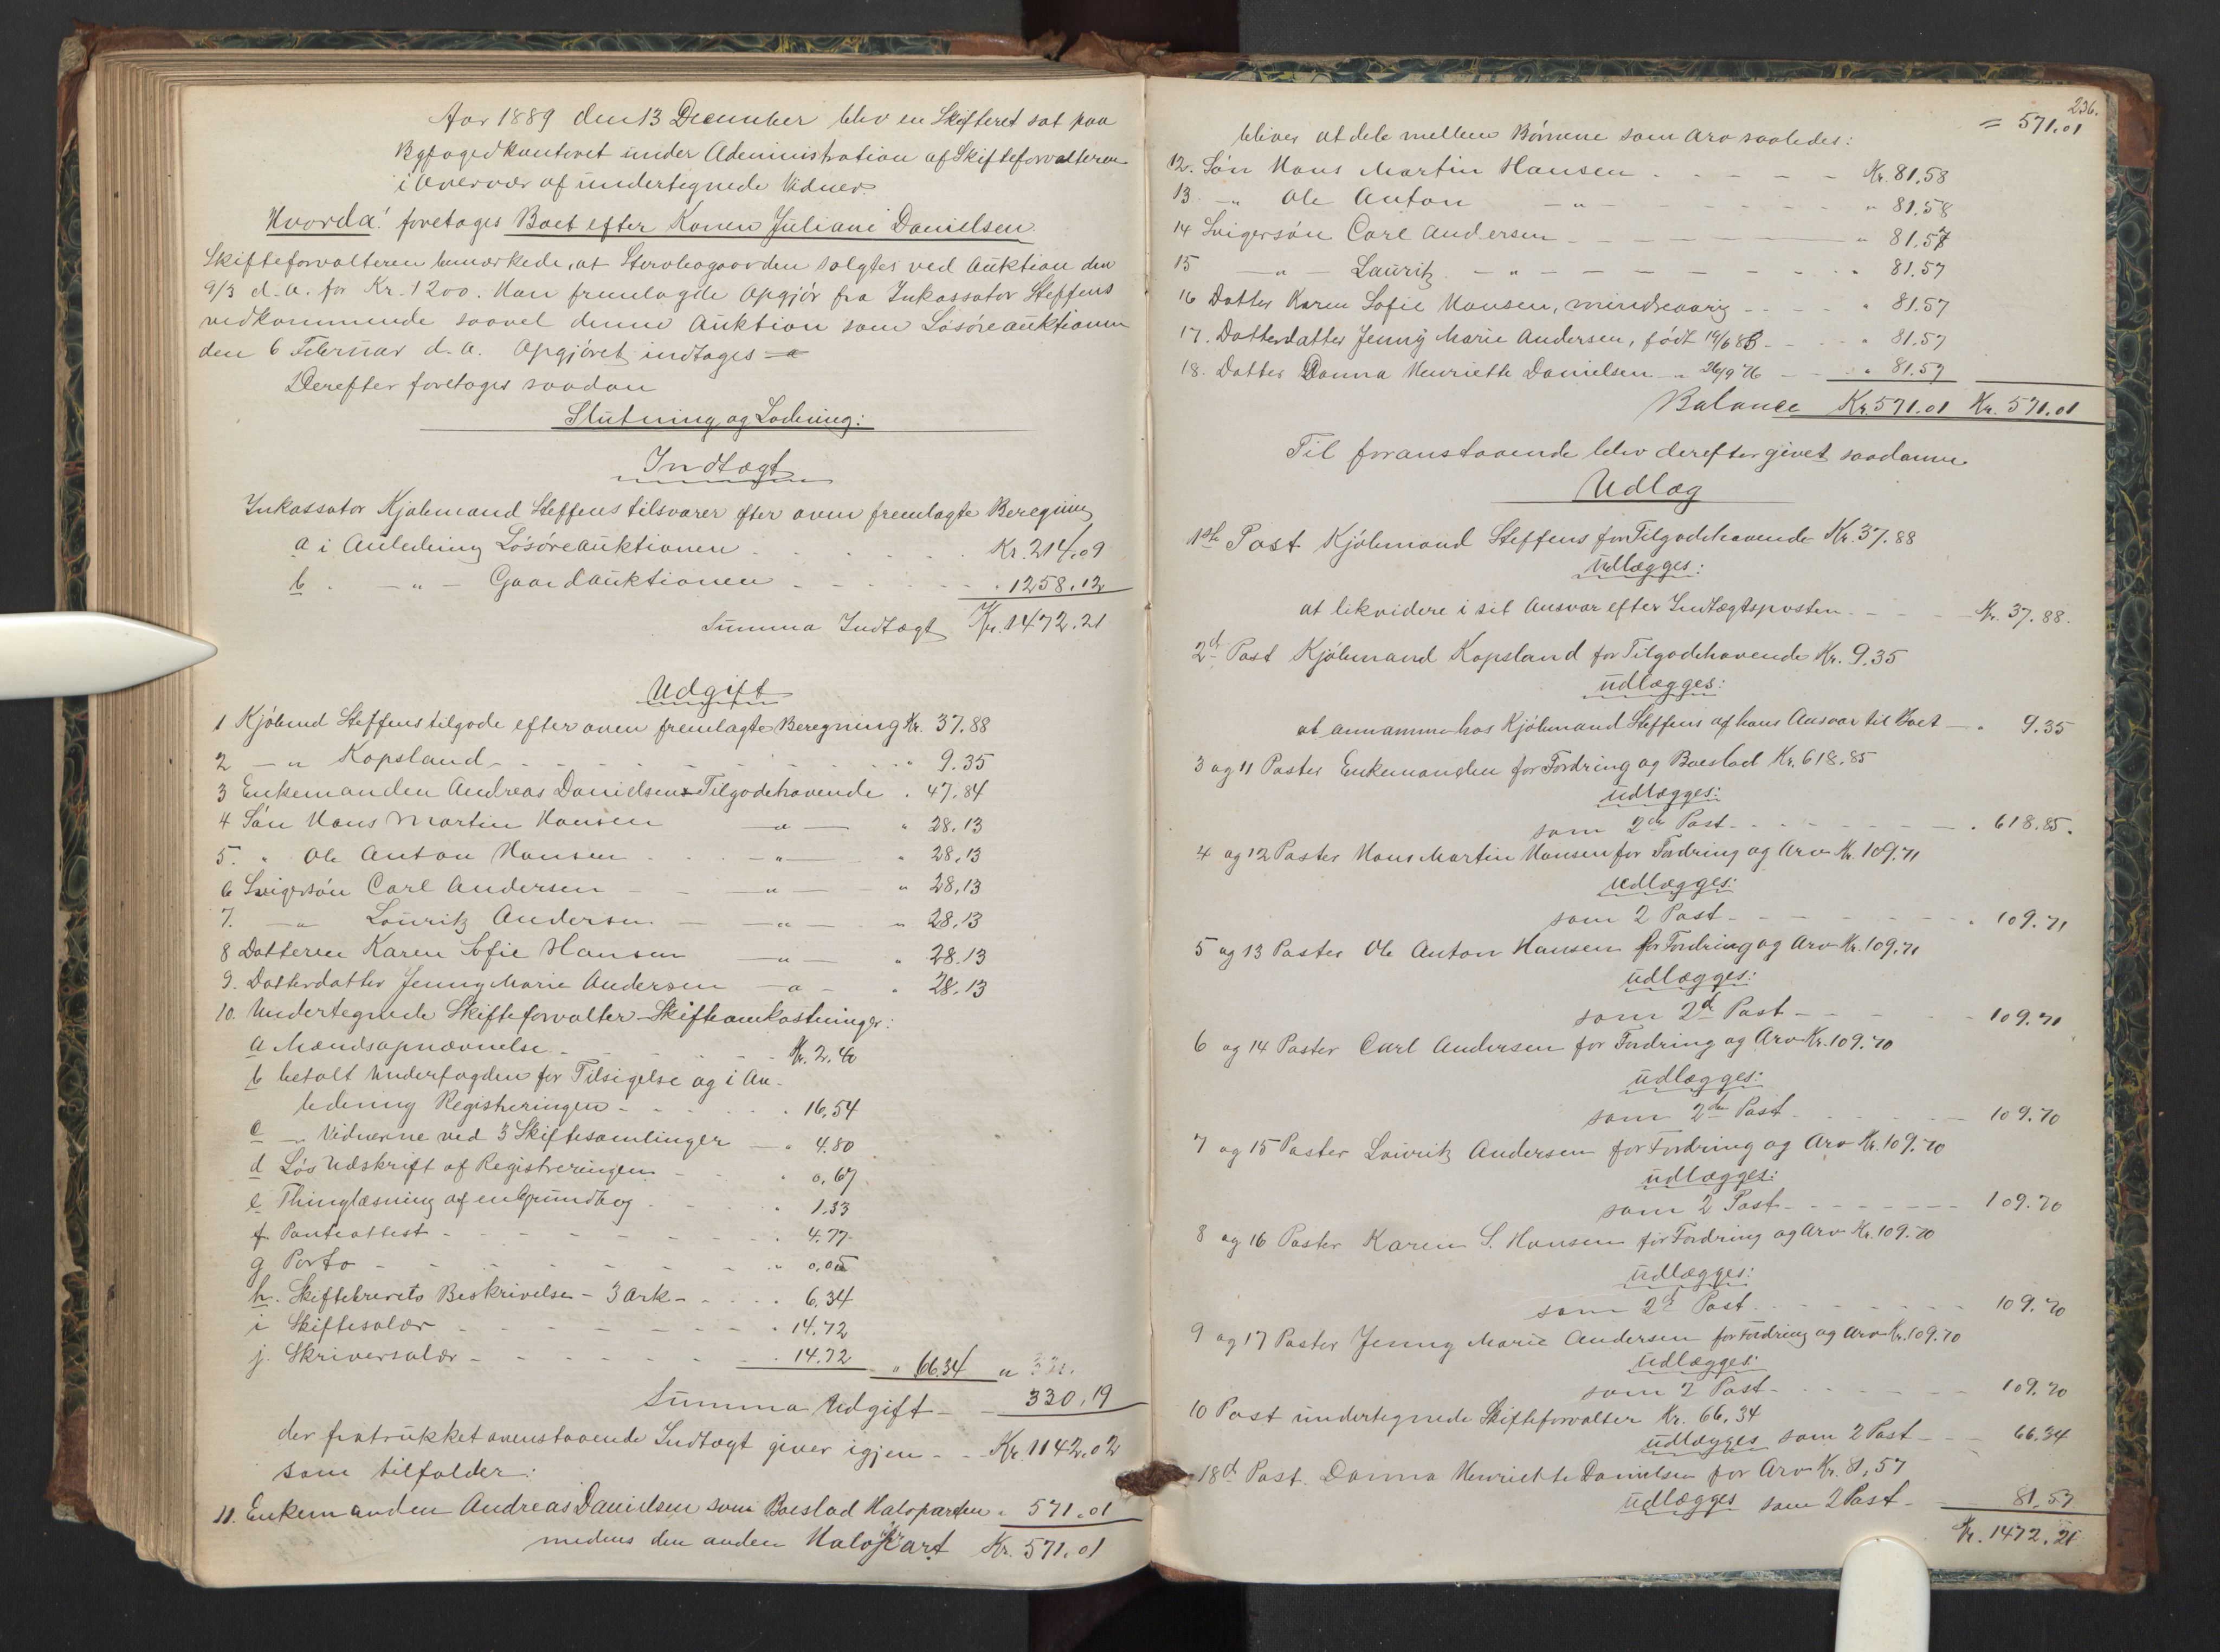 Aar 1889 den 13 December blev en Skifteret sat paa
Byfogedkontoret under Administration af Skifteforvalteren
i Overvær af undertegnede Vidner.
Hvorda! foretoges Boet efter Konen Juliane Danielsen.
Skifteforvalteren bemærkede, at Stervbogaarden solgtes ved Auktion den
9/3 d. A. for Kr. 1200. Han fremlagde Opgjør fra Inkassator Steffens
vedkommende saavel denne Auktion som Løsøreauktionen
den 6 Februar d. A. Opgjøret indtages
Derefter foretoges saadan
Slutning og Lodning:
Indtægt
Inkassator Kjøbmand Steffens tilsvarer efter oven fremlagte Beregning
a i Anledning Løsøreauktionen Kr. 214.09
b. - „ - Gaardauktionen - „ 1258.12
Summa Indtægt Kr. 1472.21
Udgift
1 Kjøbmd Steffens tilgode efter oven fremlagte Beregning Kr. 37.88
2 - „ Kopsland - „ 9.35
3 Enkemanden Andreas Danielsens Tilgodehavende „ 47.84
4 Søn Hans Martin Hansen - „ - „ 28.13
5. „ Ole Anton Hansen - „ - „ 28.13
6 Svigersøn Carl Andersen - „ - „ 28.13
7. - „ Lauritz Andersen - „ - „ 28.13
8 Datteren Karen Sofie Hansen - „ - „ 28.13
9. Datterdatter Jenny Marie Andersen - „ - „ 28.13
10. Undertegnede Skifteforvalter Skifteomkostninger:
a Mandsopnævnelse - Kr. 2.40
b betalt Underfogden for Tilsigelse og i An-
ledning Registreringen - „ 16.54
c - „ Vidnerne ved 3 Skiftesamlinger - „ 4.80
d Løs Udskrift af Registreringen - „ 0.67
e Thinglæsning af en Grundbog „ 1.33
f. Panteattest - „ 4.77
g Porto - „ 0.05
h. Skiftebrevets Beskrivelse - 3 Ark - „ 6.34
i Skiftesalær - „ 14.72
j. Skriversalær - „ 14.72 „ 66.34 „
Summa Udgift - 330.19
der fratrukket ovenstaaende Indtægt giver igjen - Kr. 1142.02
som tilfalder:
11. Enkemanden Andreas Danielsen som Boeslod Halvparten „ 571.01
medens den anden Halvpart Kr. 571.01
236.
= 571.01
bliver at dele mellem Børnene som Arv saaledes:
12. Søn Hans Martin Hansen - Kr. 81.58
13. - „ Ole Anton - „ - „ 81.58
14 Svigersøn Carl Andersen - „ 81.57
15 - „ - Lauritz - „ - „ 81.57
16 Datter Karen Sofie Hansen, mindreaarig - „ 81.57
17. Datterdatter Jenny Marie Andersen, født 19/6 83 - „ 81.57
18. Datter Danna Henriette Danielsen - „ 26/9 76 - „ 81.57
Balance Kr. 571.01 Kr. 571.01
Til foranstaaende blev derefter givet saadanne
Udlæg
1ste Post Kjøbmand Steffens for Tilgodehavende Kr. 37.88
udlægges:
at likvidere i sit Ansvar efter Indtægtsposten - Kr. 37.88.
2den Post Kjøbmand Kopsland for Tilgodehavende Kr. 9.35
udlægges:
at annamme hos Kjøbmand Steffens af hans Ansvar til Boet - „ 9.35
3 og 11 Poster Enkemanden for Fordring og Boeslod Kr. 618.85
udlægges:
som 2den Post - „ 618.85.
4 og 12 Poster Hans Martin Hansen for Fordring og Arv Kr. 109.71
udlægges:
som 2 Post - „ 109.71
5 og 13 Poster Ole Anton Hansen for Fordring og Arv Kr. 109.71
udlægges:
som 2d Post - 109.71
6 og 14 Poster Carl Andersen for Fordring og Arv Kr. 109.70
udlægges:
som 2den Post - 109.70
7 og 15 Poster Lauritz Andersen for Fordring og Arv Kr. 109.70
udlægges:
som 2 Post - 109.70
8 og 16 Poster Karen S. Hansen for Fordring og Arv Kr. 109.70
udlægges:
som 2d Post - 109.70
9 og 17 Poster Jenny Marie Andersen for Fordring og Arv Kr. 109.70
udlægges:
som 2 Post - 109.70
10 Post undertegnede Skifteforvalter Kr. 66.34
udlægges som 2 Post - 66.34
18d Post. Danna Henriette Danielsen for Arv Kr. 81.57
udlægges som 2 Post - 81.57
Kr. 1472.21